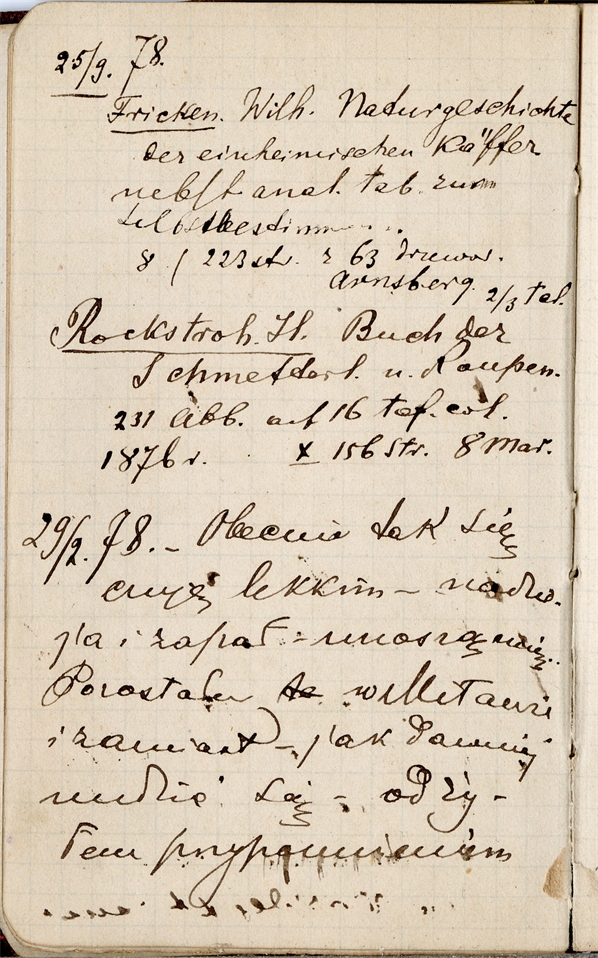 25/9. 78.
Fricken. Wilh. Naturgeschichte
der einheimischen Käffer
nebst anal. tab. zum
8 / 223 str. z 63 drzewor.
Arnsberg. 2/3 tal.
Rockstroh. H. Buch der
Schmetterl. u. Raupen.
231 Abb. auf 16 taf. col.
1876 r. X 156 str. 8 Mar.
29/9. 78. - Obecnie tak się
czuję lekkim - nadzie-
ja i zapał - unoszą mię.
Pozostałem w Mitawie
i zamiast - jak dawniej
nudzić się - odży-
łem przypomnieniem